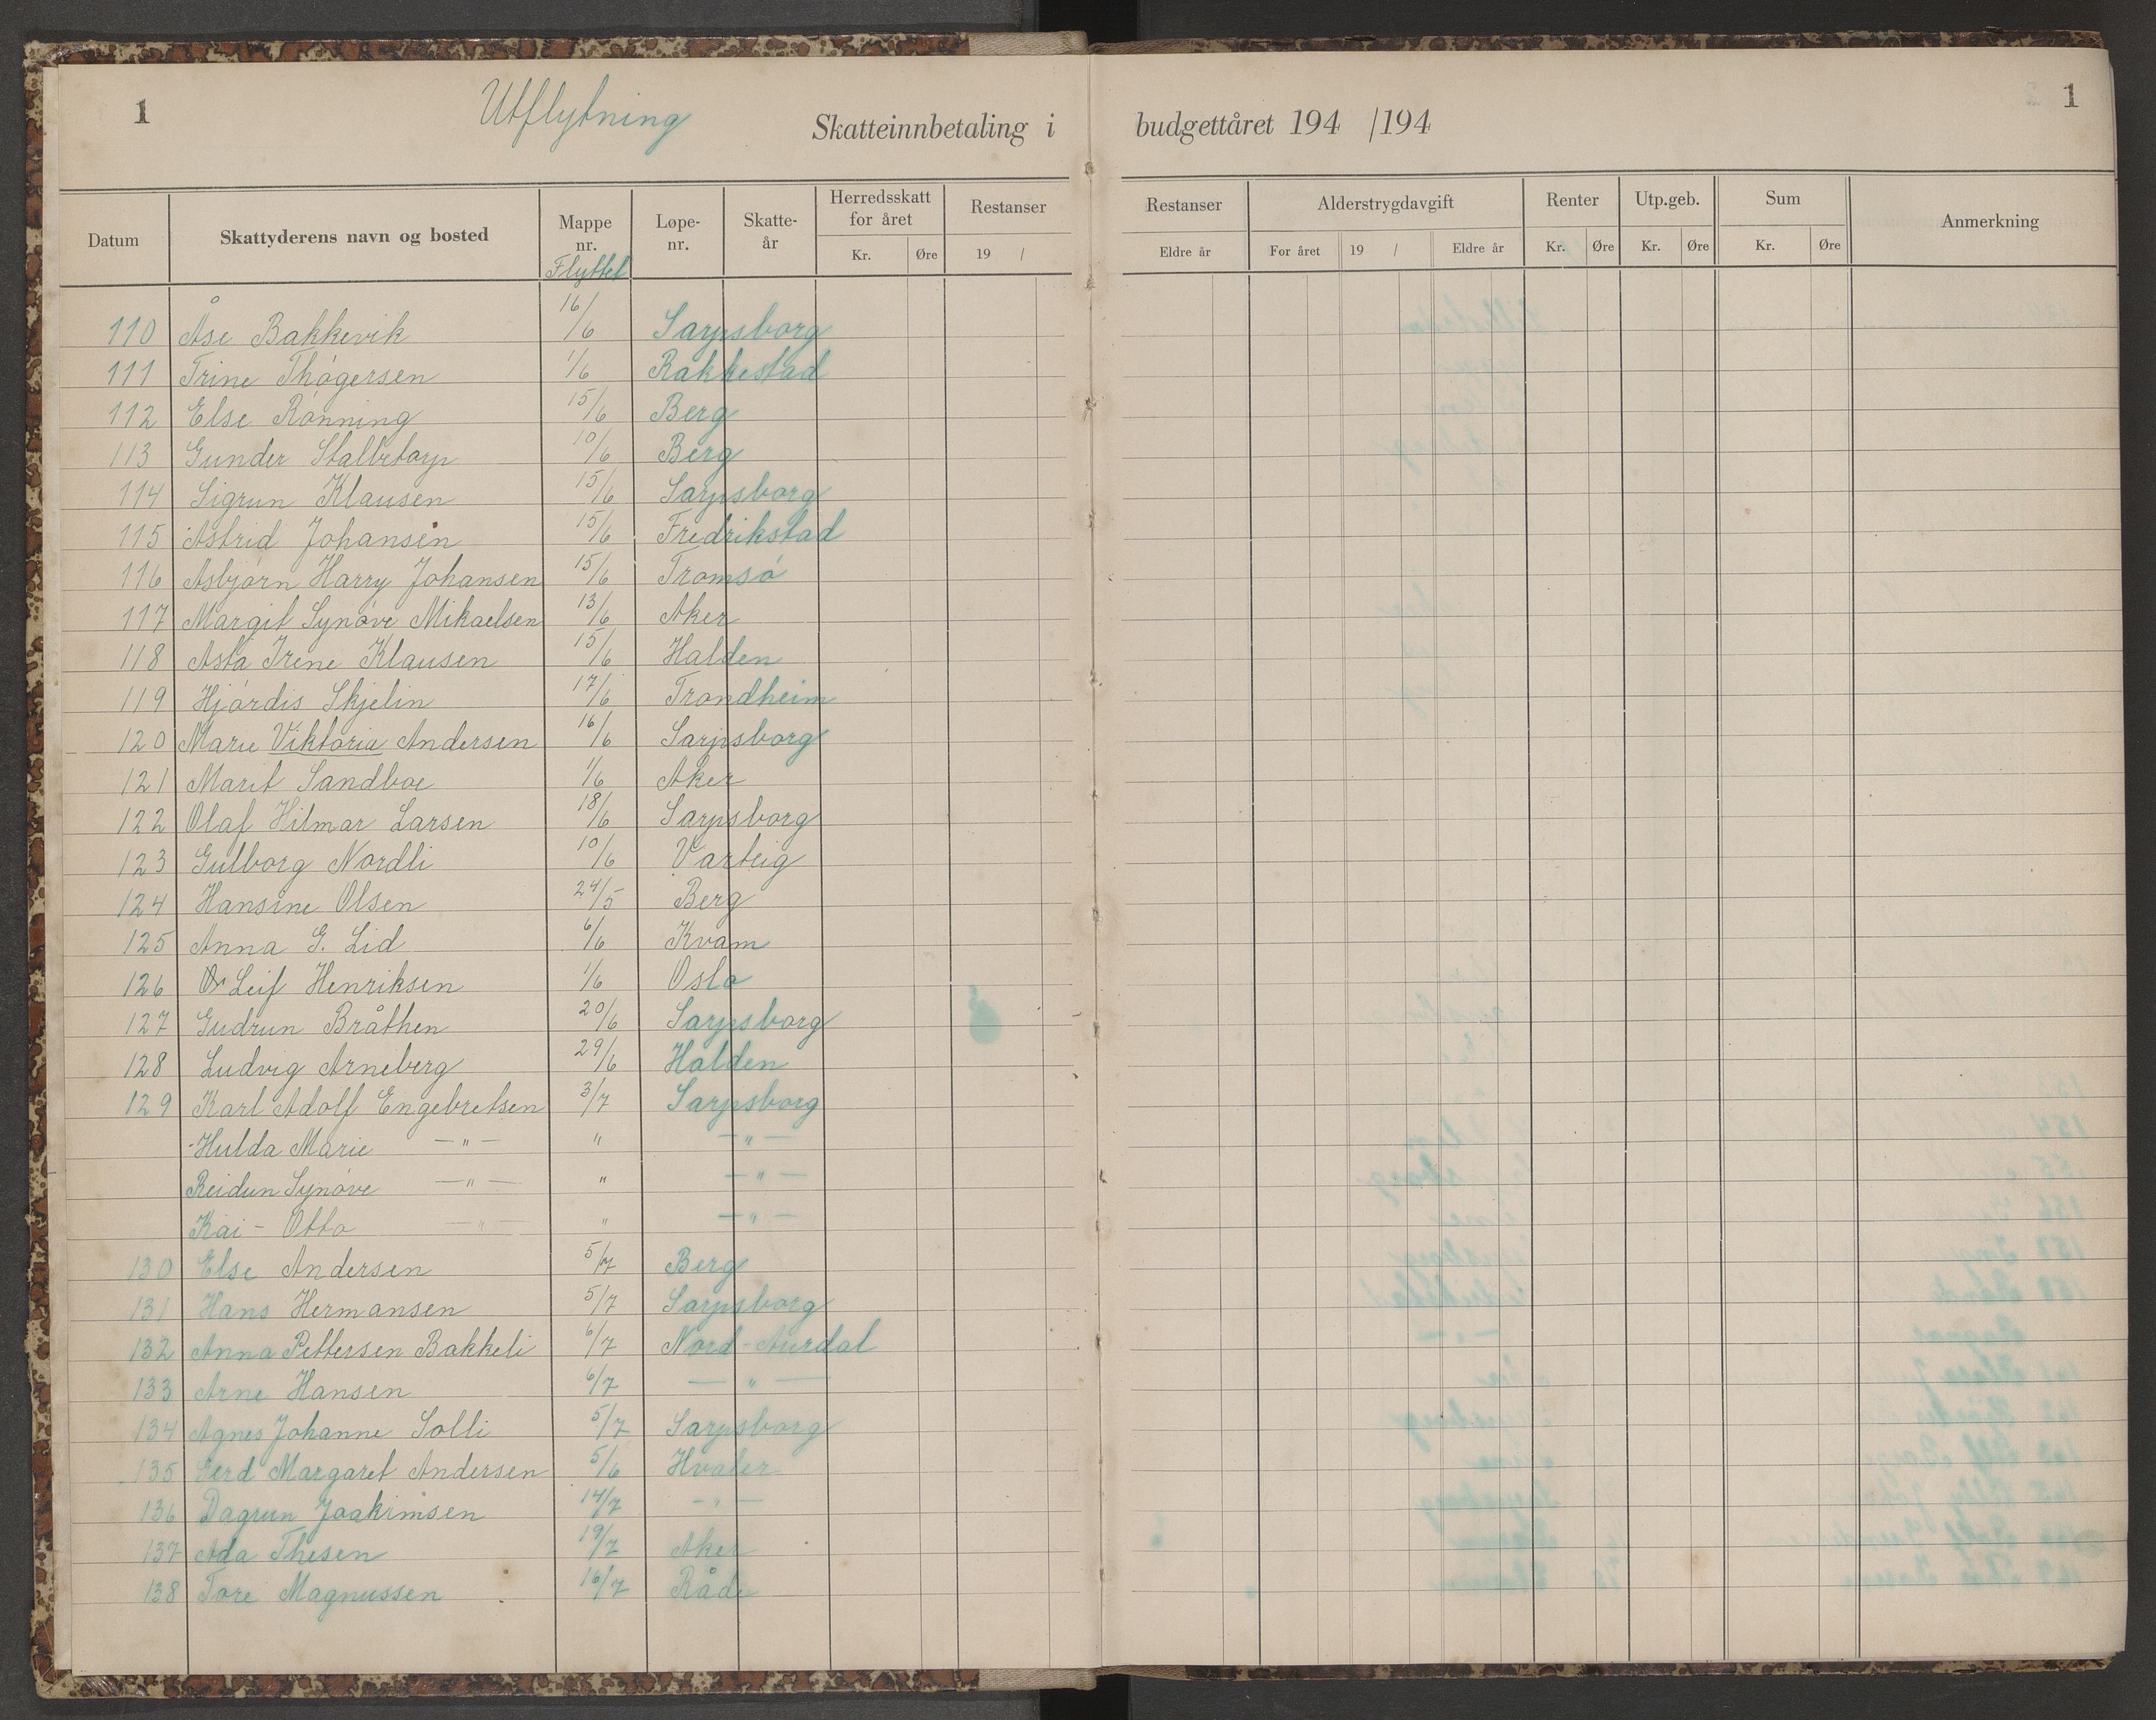 1 Utflytning Skatteinnbetaling i budgettåret 194 /194 1
Datum Skattyderens navn og bosted Mappe nr. Flyttet Løpe-nr. Skatte-år Herredsskatt for året Kr. Øre Restanser 19 / Restanser Eldre år Alderstrygdavgift For året 19 / Eldre år Renter Kr. Øre Utp.geb. Kr. Øre Sum Kr. Øre Anmerkning
110 Åse Bakkevik 16/6 Sarpsborg
111 Trine Thøgersen 1/6 Rakkestad
112 Else Rønning 15/6 Berg
113 Gunder Stalbetorp 10/6 Berg
114 Sigrun Klausen 15/6 Sarpsborg
115 Astrid Johansen 15/6 Fredrikstad
116 Asbjørn Harry Johansen 15/6 Tromsø
117 Margit Synøve Mikaelsen 13/6 Aker
118 Asta Irene Klausen 15/6 Halden
119 Hjørdis Skjelin 17/6 Trondheim
120 Marie Viktoria Andersen 16/6 Sarpsborg
121 Marit Sandboe 1/6 Aker
122 Olaf Hilmar Larsen 18/6 Sarpsborg
123 Gulborg Nordli 10/6 Varteig
124 Hansine Olsen 24/5 Berg
125 Anna G. Lid 6/6 Kvam
126 Leif Henriksen 1/6 Oslo
127 Gudrun Bråthen 20/6 Sarpsborg
128 Ludvig Arneberg 29/6 Halden
129 Karl Adolf Engebretsen 3/7 Sarpsborg
Hulda Marie —"— " —"—
Reidun Synøve —"— " —"—
Kai - Otto —"— " —"—
130 Else Andersen 5/7 Berg
131 Hans Hermansen 5/7 Sarpsborg
132 Anna Pettersen Bakkeli 6/7 Nord-Aurdal
133 Arne Hansen 6/7 —"—
134 Agnes Johanne Solli 5/7 Sarpsborg
135 Gerd Margaret Andersen 5/6 Hvaler
136 Dagrun Joakimsen 14/7 —"—
137 Ada Thesen 19/7 Aker
138 Tore Magnussen 16/7 Råde